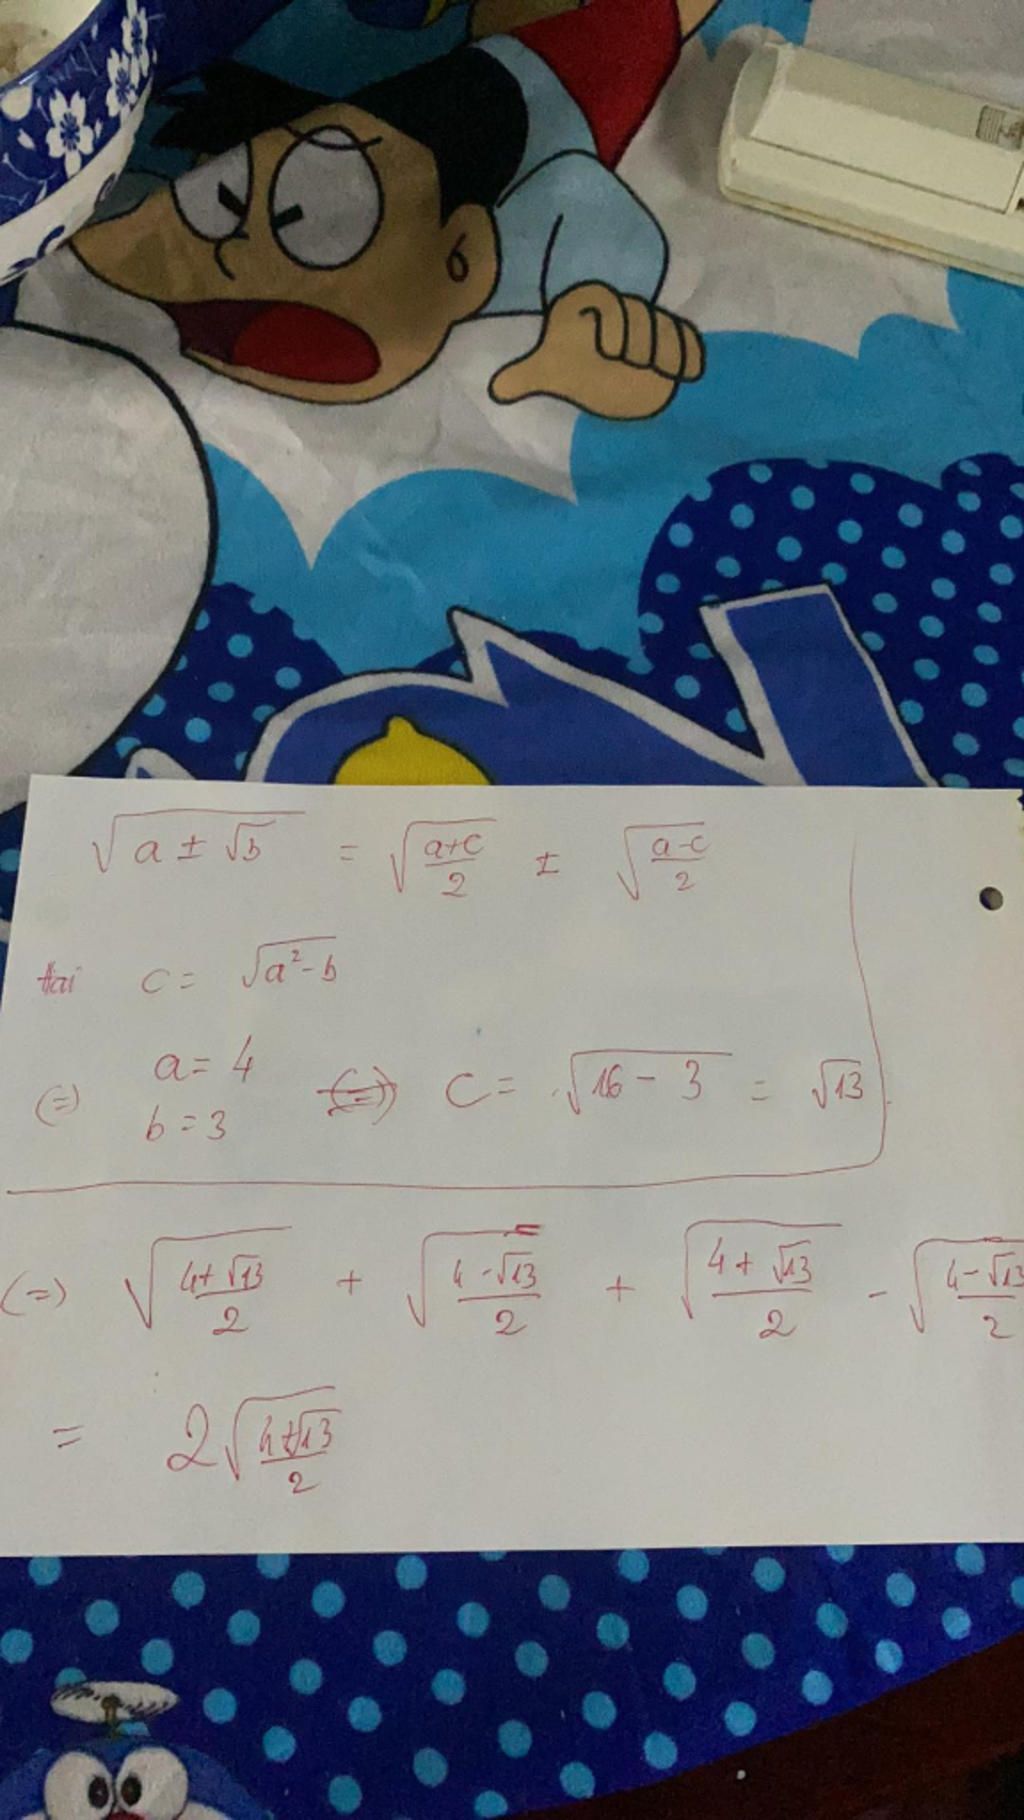 √(a ± √b) = √((a+c)/2) ± √((a-c)/2)
tại c = √(a²-b)
(=) a = 4 c = √(16 - 3) = √13
b = 3
(=) √((4+√13)/2) + √((4-√13)/2) + √((4+√13)/2) - √((4-√13)/2)
= 2√((4+√13)/2)